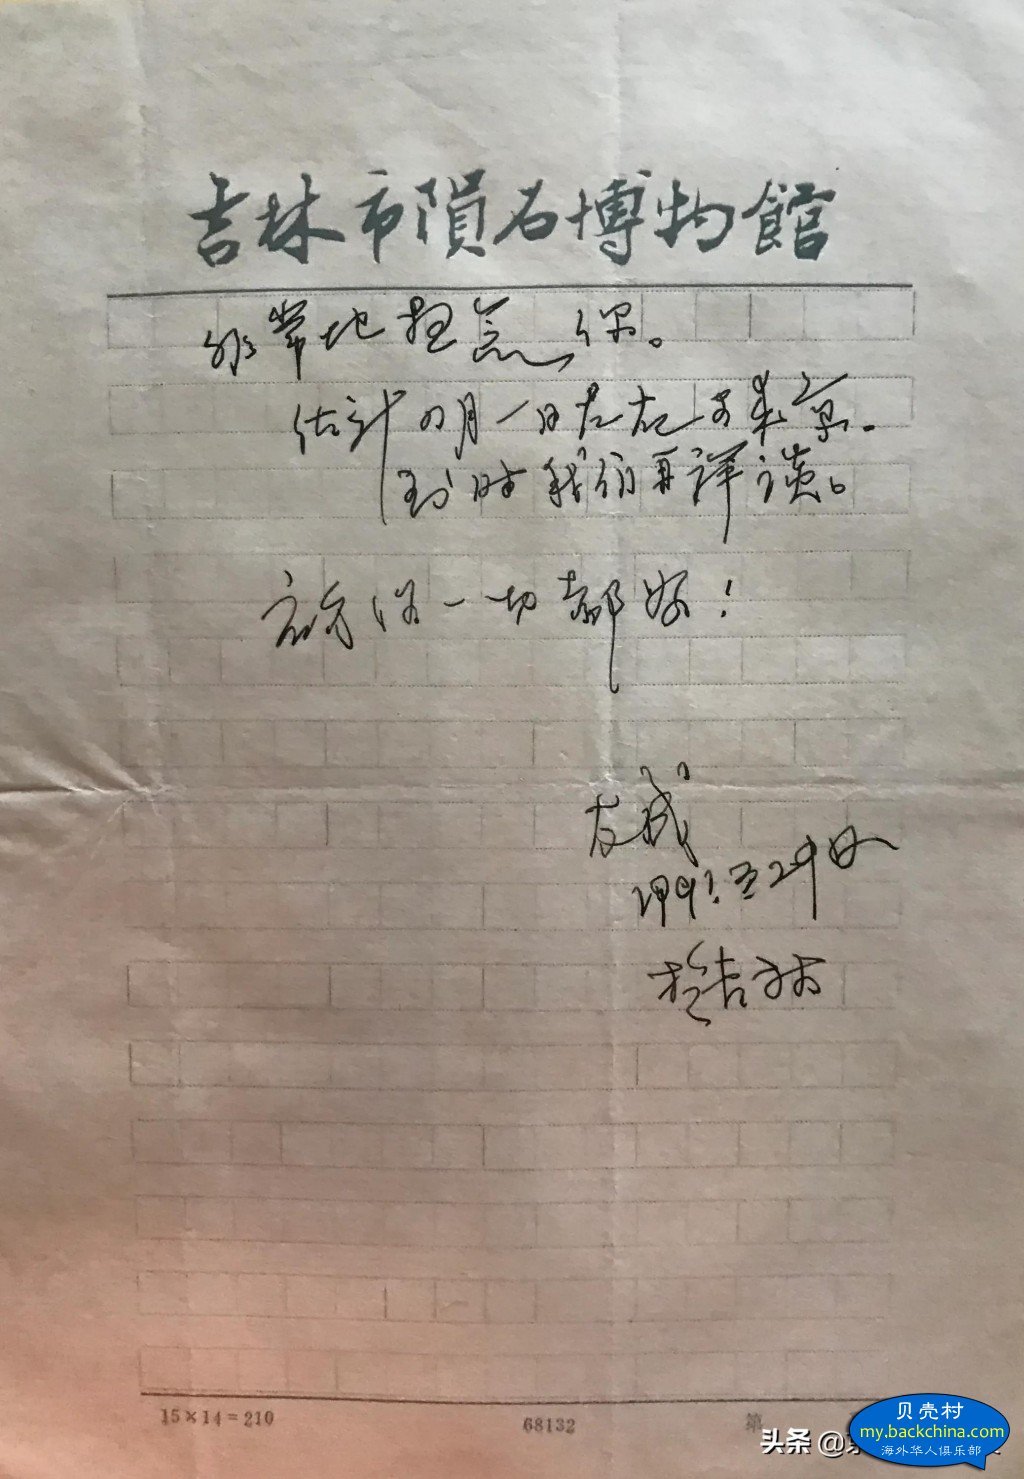 吉林市隕石博物館
非常地想念你。
估计四月一日左右可来京。
到时我们再詳谈。
祝你一切都好！
友
29日
于吉林
15×14=210
68132
第
头条 @
贝壳村
my.backchina.com
海外华人俱乐部